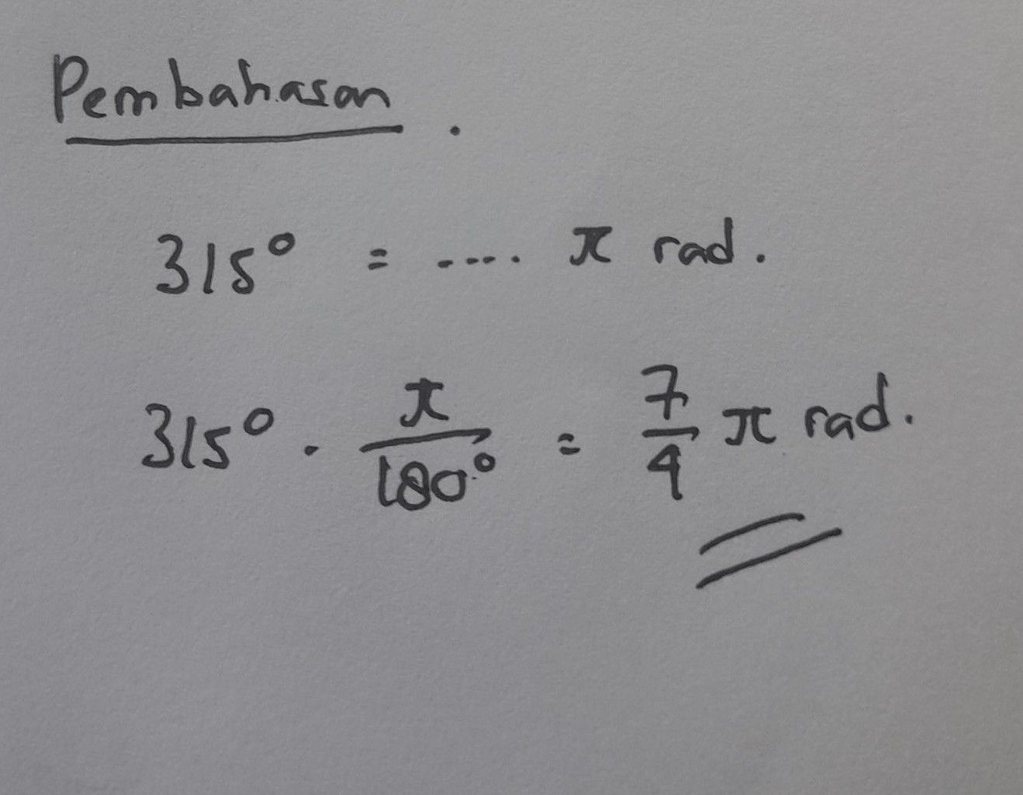 Pembahasan .
315° = .... π rad.
315° . π/180° = 7/4 π rad.